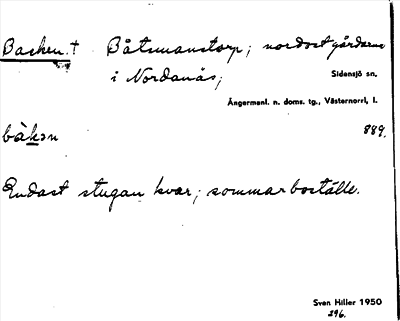 Backen.† Båtsmanstorp; nordost gårdarna
i Nordanås; Sidensjö sn.
Ångermanl. n. doms. tg., Västernorrl. l.
bàkən 889.
Endast stugan kvar; sommarboställe.
Sven Hiller 1950
296.